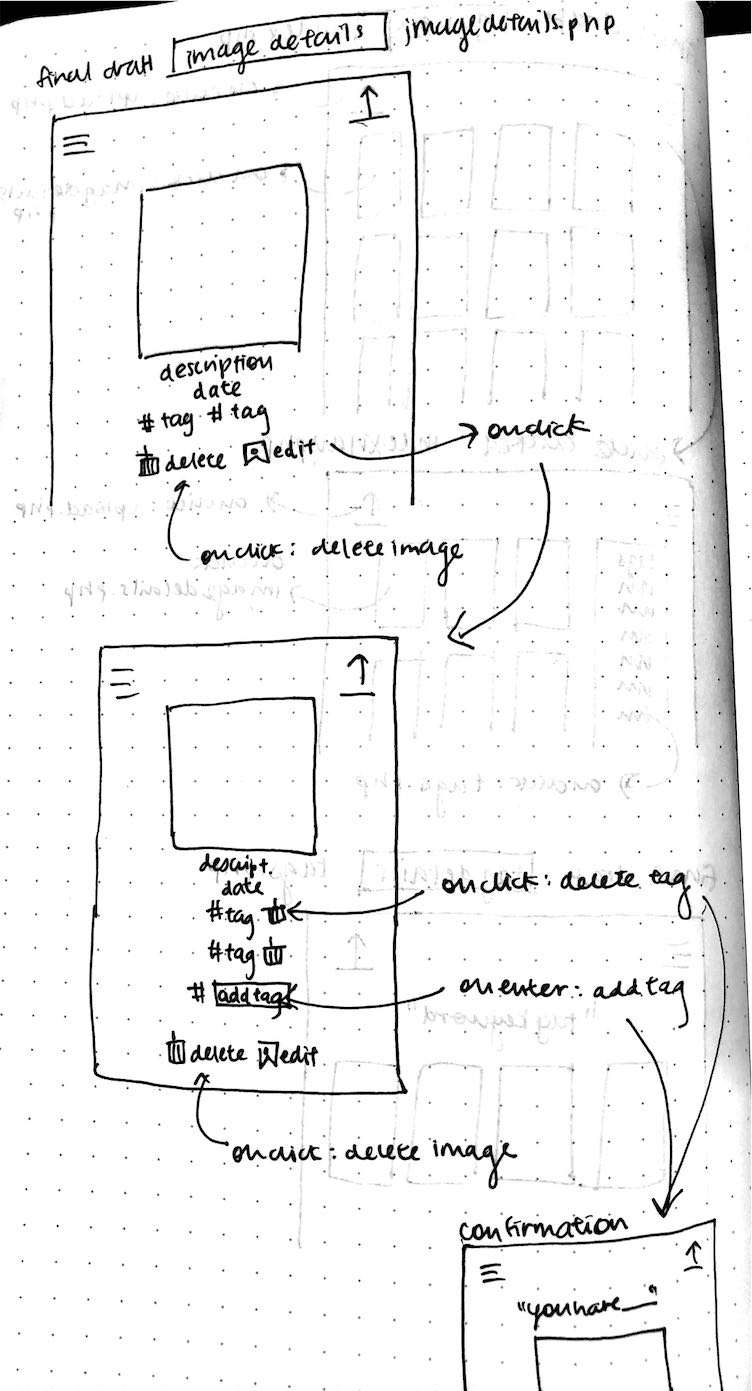 final draft image details imagedetails.php
description
date
# tag # tag
delete edit
onclick
onclick: delete image
descript.
date
# tag
onclick: delete tag
# tag
# add tag
on enter: add tag
delete edit
onclick: delete image
confirmation
"you have ___"